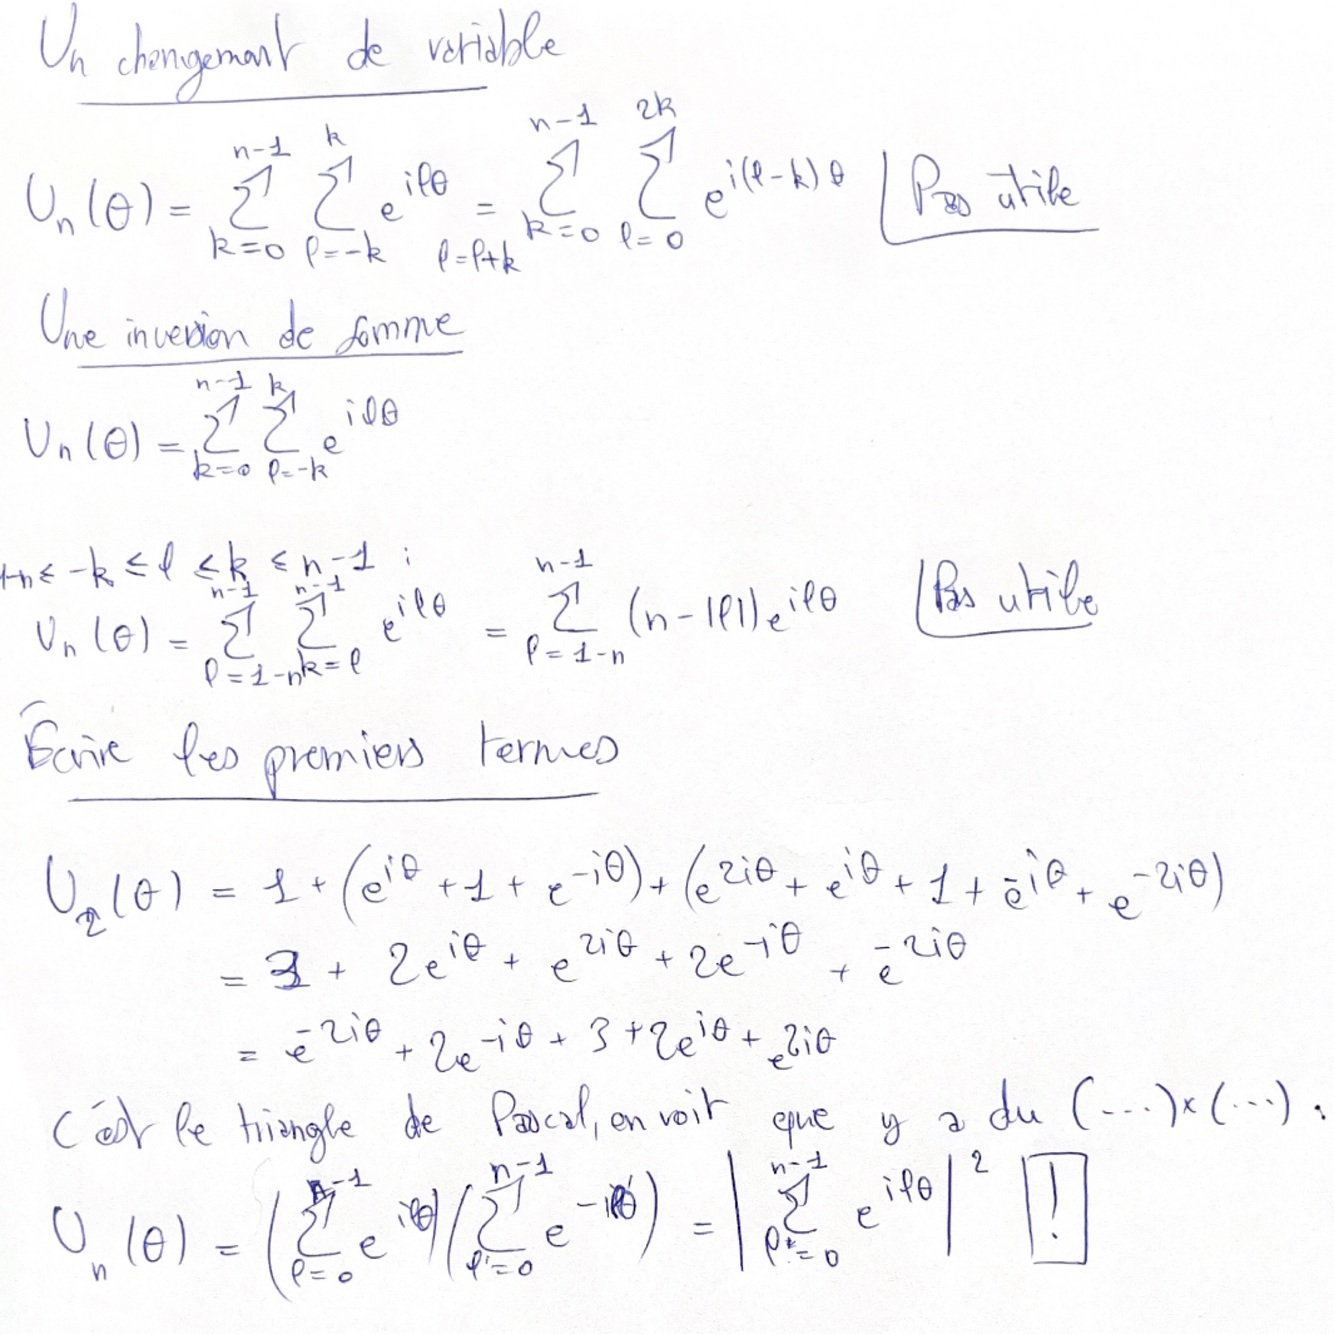 Un changement de variable
U_n(θ) = ∑_{k=0}^{n-1} ∑_{l=-k}^{k} e^{ilθ} =_{l=l+k} ∑_{k=0}^{n-1} ∑_{l=0}^{2k} e^{i(l-k)θ} | Pas utile
Une inversion de somme
U_n(θ) = ∑_{k=0}^{n-1} ∑_{l=-k}^{k} e^{ilθ}
1-n ≤ -k ≤ l ≤ k ≤ n-1 ;
U_n(θ) = ∑_{l=1-n}^{n-1} ∑_{k=l}^{n-1} e^{ilθ} = ∑_{l=1-n}^{n-1} (n-|l|) e^{ilθ} | Pas utile
Écrire les premiers termes
U_2(θ) = 1 + (e^{iθ} + 1 + e^{-iθ}) + (e^{2iθ} + e^{iθ} + 1 + e^{-iθ} + e^{-2iθ})
= 3 + 2e^{iθ} + e^{2iθ} + 2e^{-iθ} + e^{-2iθ}
= e^{-2iθ} + 2e^{-iθ} + 3 + 2e^{iθ} + e^{2iθ}
C'est le triangle de Pascal, on voit que y a du (...)×(...) :
U_n(θ) = (∑_{l=0}^{n-1} e^{ilθ}) (∑_{l'=0}^{n-1} e^{-il'θ}) = |∑_{l=0}^{n-1} e^{ilθ}|^2 !